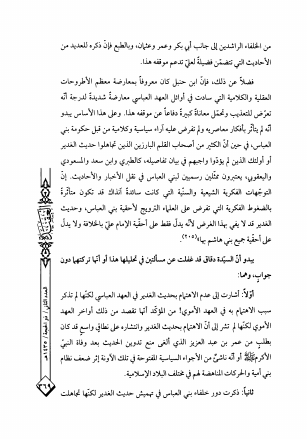 من الخلفاء الراشدين إلى جانب أبي بكر وعمر وعثمان، وبالطبع فإنّ ذكره للعديد من
الأحاديث التي تتضمّن فضيلةً لعليّ تدعم موقفه هذا.
فضلاً عن ذلك، فإنّ ابن حنبل كان معروفاً بمعارضة معظم الأطروحات
العقلية والكلامية التي سادت في أوائل العهد العباسي معارضةً شديدةً لدرجة أنّه
تعرّض للتعذيب وتحمّل معاناةً كبيرةً دفاعاً عن موقفه هذا. وعلى هذا الأساس يبدو
أنّه لم يتأثّر بأفكار معاصريه ولم تفرض عليه آراء سياسية وكلامية من قبل حكومة بني
العباس، في حين أنّ الكثير من أصحاب القلم البارزين الذين تجاهلوا حديث الغدير
أو أولئك الذين لم يؤدّوا واجبهم في بيان تفاصيله، كالطبري وابن سعد والمسعودي
واليعقوبي، يعتبرون ممثّلين رسميين لبني العباس في نقل الأخبار والأحاديث. إنّ
التوجّهات الفكرية الشيعية والسنّية التي كانت سائدةً آنذاك قد تكون متأثّرةً
بالضغوط الفكرية التي تفرض على العلماء الترويج لأحقية بني العباس، وحديث
الغدير قد لا يفي بهذا الغرض لأنّه يدلّ فقط على أحقّية الإمام علي بالخلافة ولا يدلّ
على أحقّية جميع بني هاشم بها(٢٠٥).
يبدو أنّ السيّدة دقاق قد غفلت عن مسألتين في تحليلها هذا أو أنّها تركتهما دون
جواب، وهما:
أوّلاً: أشارت إلى عدم الاهتمام بحديث الغدير في العهد العباسي لكنّها لم تذكر
سبب الاهتمام به في العهد الأموي! من المؤكّد أنّها تقصد من ذلك أواخر العهد
الأموي لكنّها لم تشر إلى أنّ الاهتمام بحديث الغدير وانتشاره على نطاق واسع قد كان
بطلب من عمر بن عبد العزيز الذي ألغى منع تدوين الحديث بعد وفاة النبيّ
الأكرم أو أنّه ناشئٌ من الأجواء السياسية المفتوحة في تلك الآونة إثر ضعف نظام
بني أمية والحركات المناهضة لهم في مختلف البلاد الإسلامية.
ثانياً: ذكرت دور خلفاء بني العباس في تهميش حديث الغدير لكنّها تجاهلت
العقيدة
العدد الثاني / ذو الحجة / ١٤٣٥هـ
٣٦٩